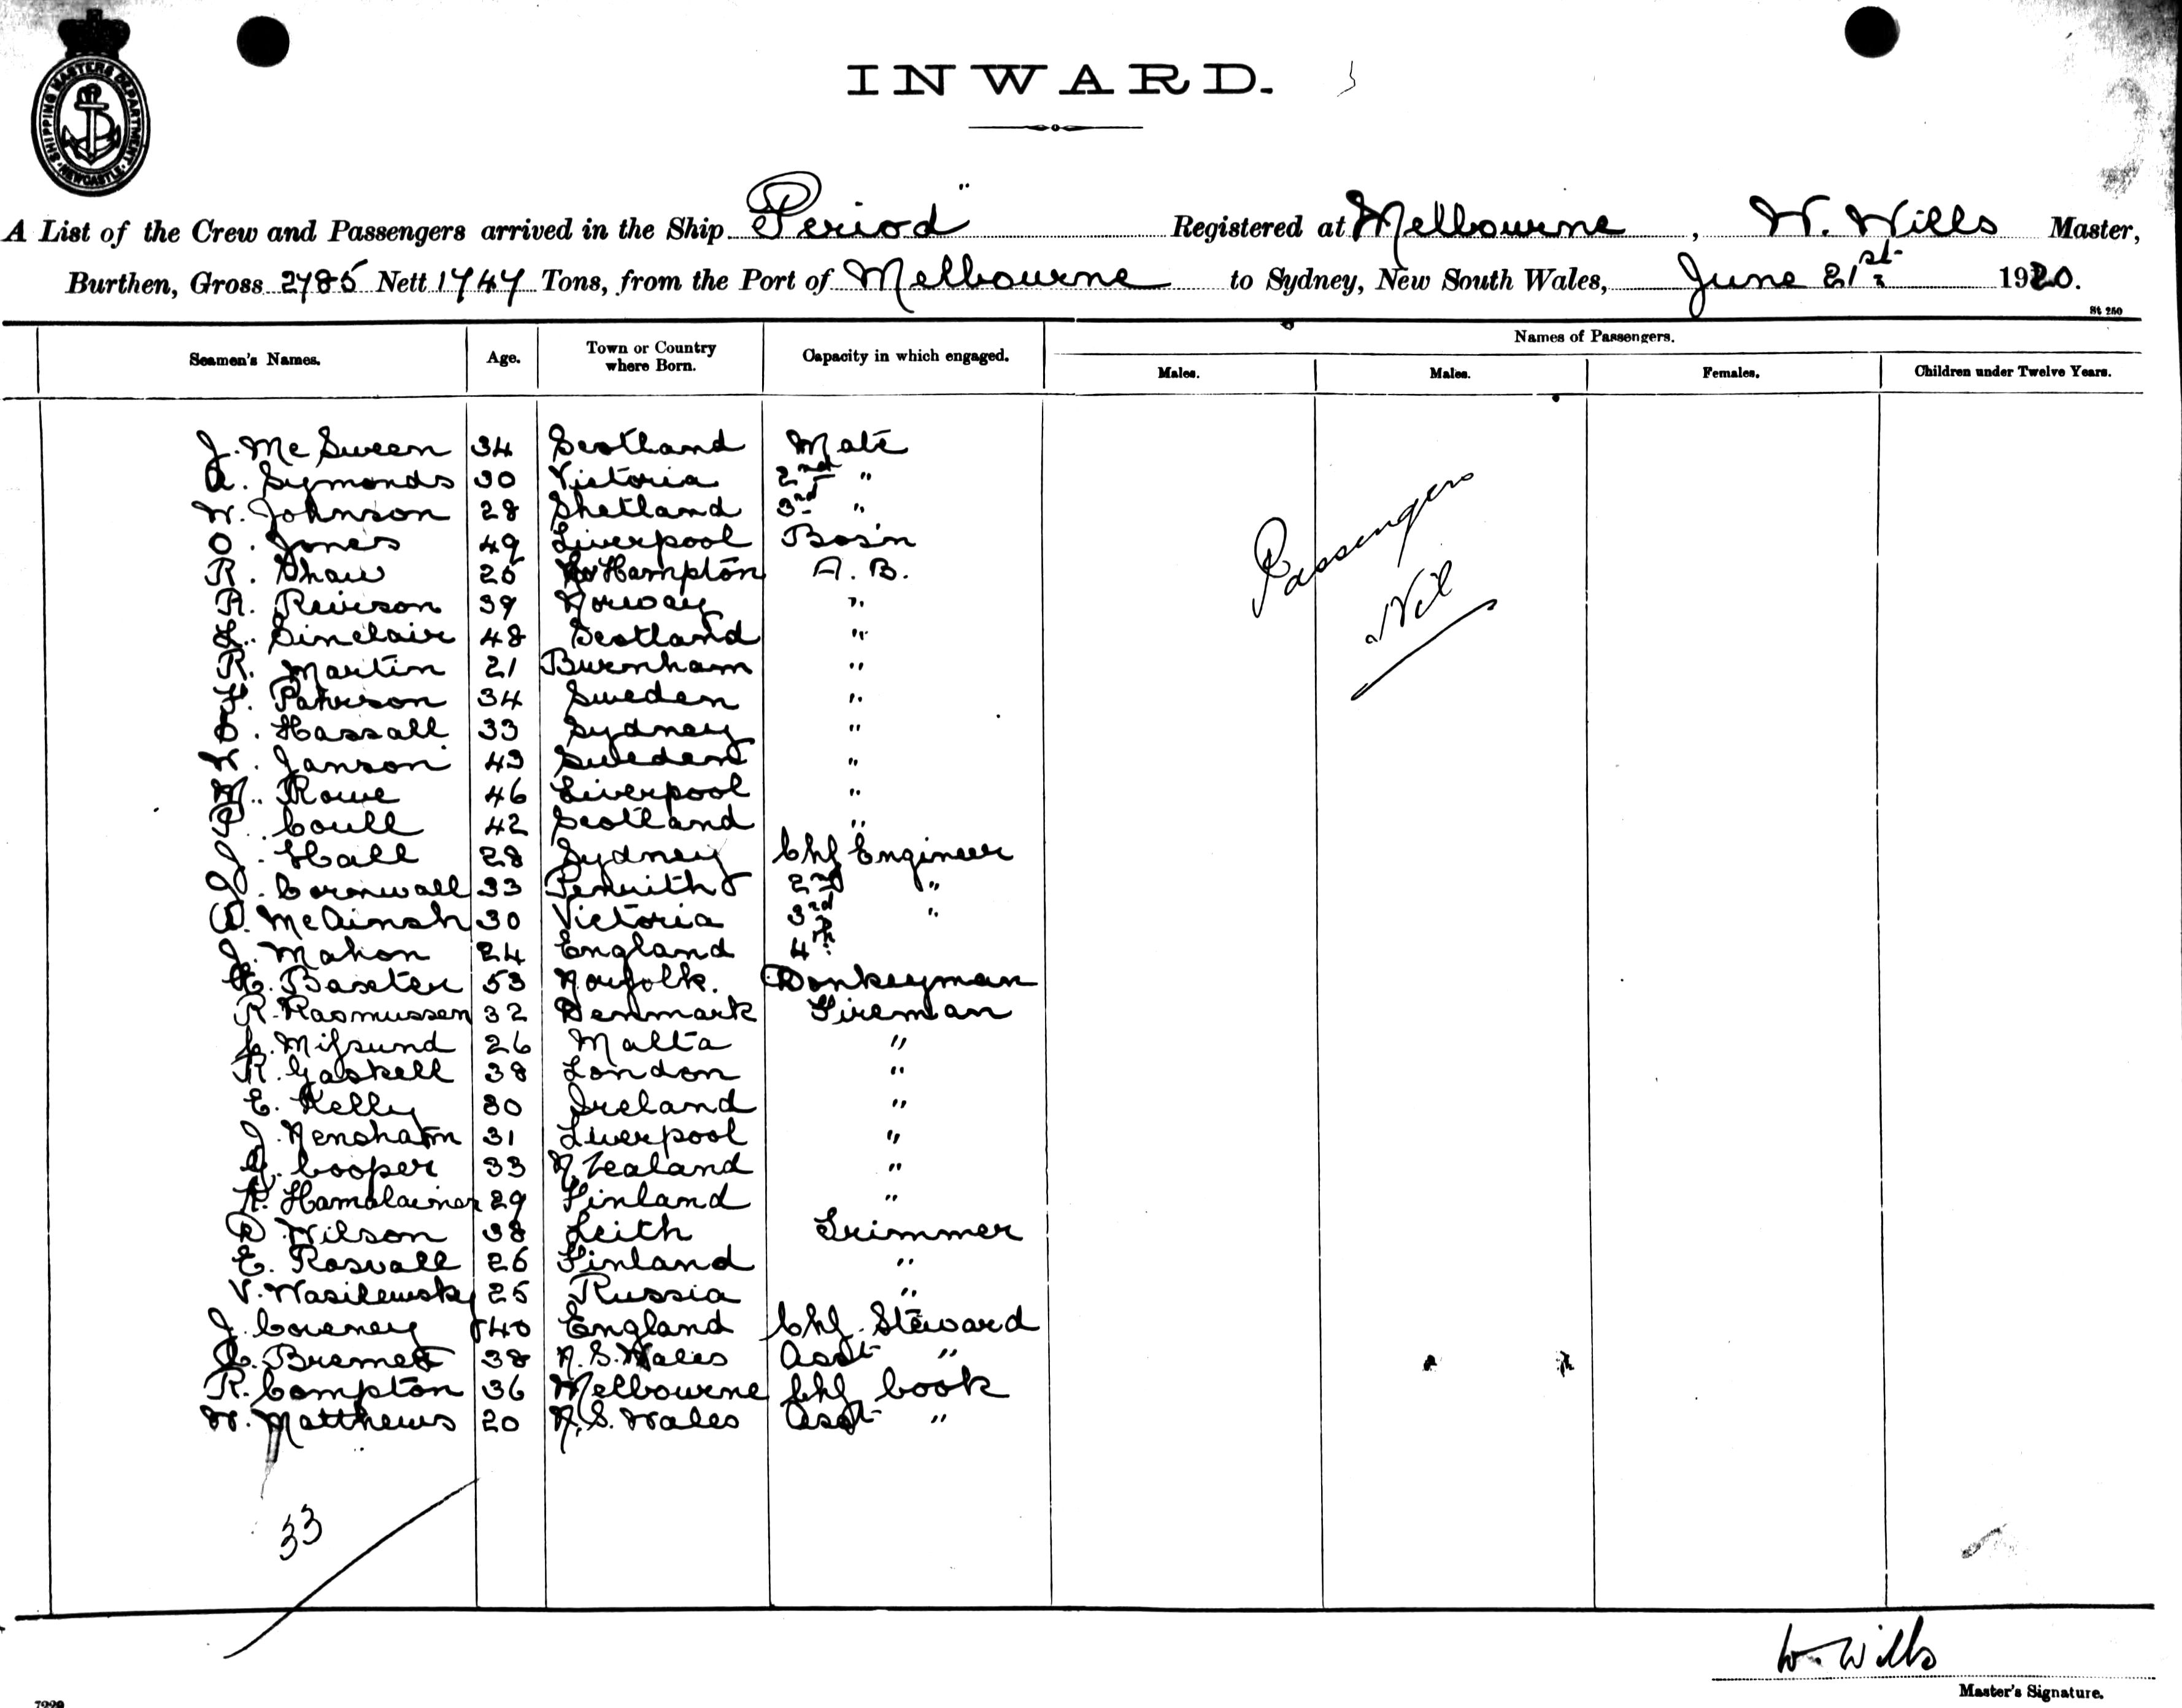 SHIPPING MASTERS DEPARTMENT NEWCASTLE
INWARD.
A List of the Crew and Passengers arrived in the Ship "Period" Registered at Melbourne, W. Wills Master,
Burthen, Gross 2785 Nett 1747 Tons, from the Port of Melbourne to Sydney, New South Wales, June 21st 1920.
St 250
Seamen's Names. Age. Town or Country where Born. Capacity in which engaged. Names of Passengers.
Males. Males. Females. Children under Twelve Years.
J. McSween 34 Scotland Mate
A. Symonds 30 Victoria 2nd "
W. Johnson 28 Shetland 3rd "
O. Jones 49 Liverpool Bosn
R. Shaw 25 Hampton A. B.
R. 39 Norway "
L. Sinclair 48 Scotland "
R. Martin 21 Burnham "
34 Sweden "
Hassall 33 Sydney "
Janson 43 Sweden "
M. Rowe 46 Liverpool "
P. Coull 42 Scotland "
J. Hall 28 Sydney Chf Engineer
J. Cornwall 33 Penrith 2nd "
A. McAinsh 30 Victoria 3rd "
J. Mahon 24 England 4th
H. Baxter 53 Norfolk. Donkeyman
R. Rasmussen 32 Denmark Fireman
Mifsund 26 Malta "
R. Gaskell 38 London "
E. Kelly 30 Ireland "
J. Hensham 31 Liverpool "
G. Cooper 33 N. Zealand "
Hamalainen 29 Finland "
D. Wilson 38 Leith Trimmer
E. Rosvall 26 Finland "
V. Wasilewsky 25 Russia "
J. Coveney 40 England Chf Steward
38 N. S. Wales Asst "
R. Compton 36 Melbourne Chf Cook
W. Matthews 20 N. S. Wales Asst "
Passengers
Nil
33
W. Wills
Master's Signature.